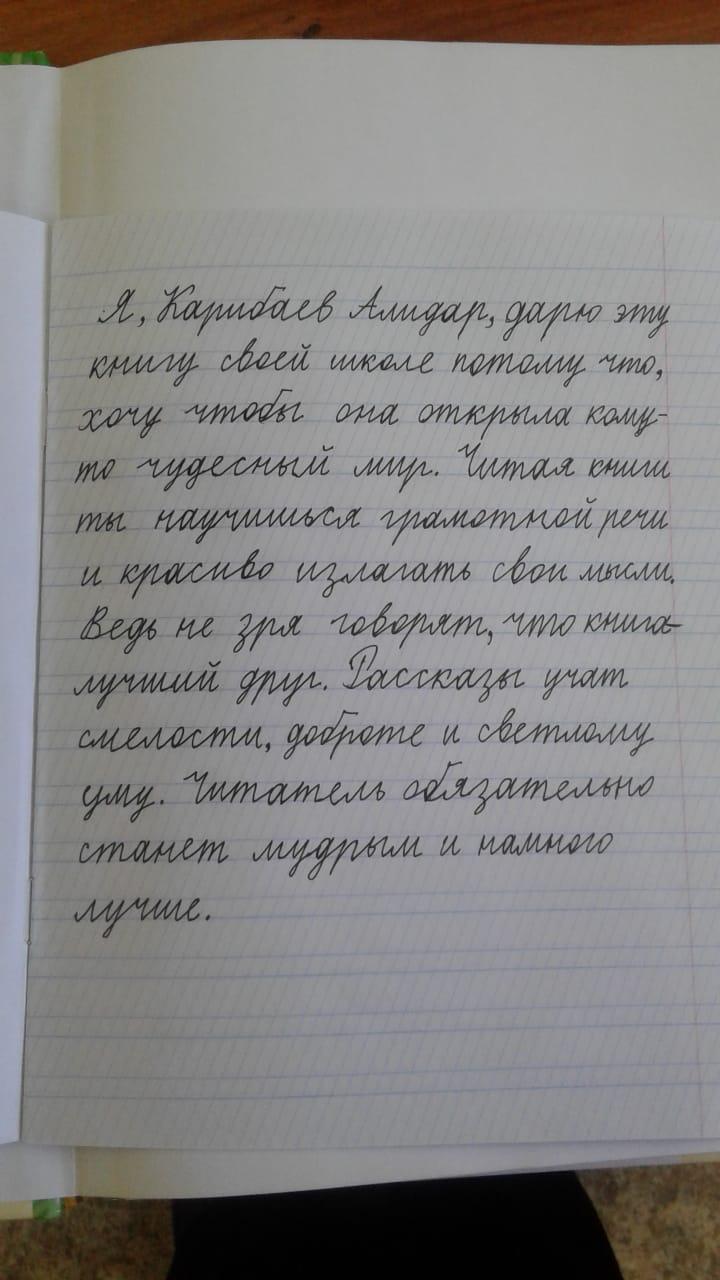 Я, Карибаев Алидар, дарю эту
книгу своей школе потому что,
хочу чтобы она открыла кому-
то чудесный мир. Читая книги
ты научишься грамотной речи
и красиво излагать свои мысли.
Ведь не зря говорят, что книга-
лучший друг. Рассказы учат
смелости, доброте и светлому
уму. Читатель обязательно
станет мудрым и намного
лучше.